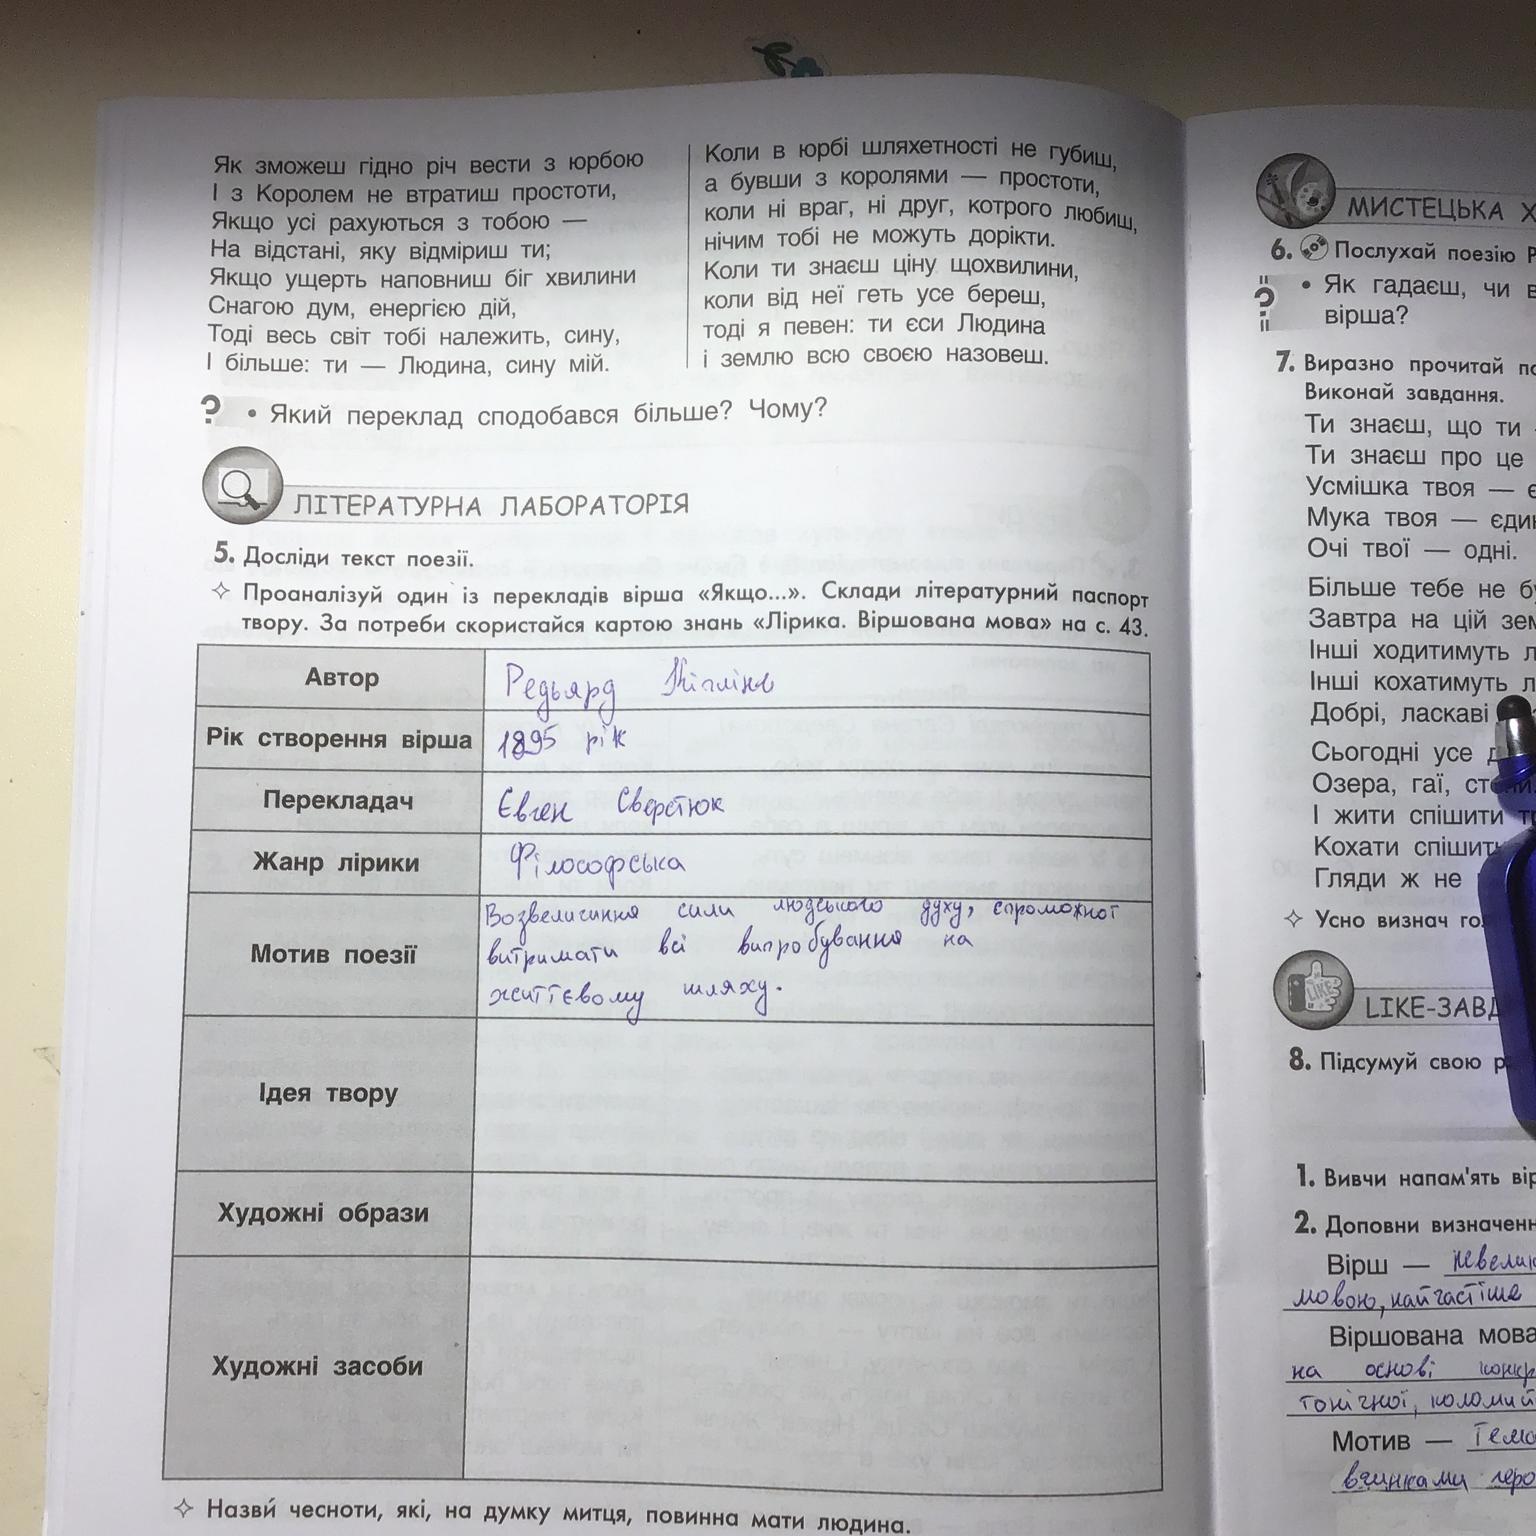 Як зможеш гідно річ вести з юрбою
І з Королем не втратиш простоти,
Якщо усі рахуються з тобою —
На відстані, яку відміриш ти;
Якщо ущерть наповниш біг хвилини
Снагою дум, енергією дій,
Тоді весь світ тобі належить, сину,
І більше: ти — Людина, сину мій.
Коли в юрбі шляхетності не губиш,
а бувши з королями — простоти,
коли ні враг, ні друг, котрого любиш,
нічим тобі не можуть дорікти.
Коли ти знаєш ціну щохвилини,
коли від неї геть усе береш,
тоді я певен: ти єси Людина
і землю всю своєю назовеш.
? • Який переклад сподобався більше? Чому?
ЛІТЕРАТУРНА ЛАБОРАТОРІЯ
5. Досліди текст поезії.
Проаналізуй один із перекладів вірша «Якщо...». Склади літературний паспорт
твору. За потреби скористайся картою знань «Лірика. Віршована мова» на с. 43.
Автор Редьярд Кіплінг
Рік створення вірша 1895 рік
Перекладач Євген Сверстюк
Жанр лірики Філософська
Мотив поезії
Возвеличення сили людського духу, спроможної
витримати всі випробування на
життєвому шляху.
Ідея твору
Художні образи
Художні засоби
Назви́ чесноти, які, на думку митця, повинна мати людина.
МИСТЕЦЬКА
6. Послухай поезію
? • Як гадаєш, чи
вірша?
7. Виразно прочитай
Виконай завдання.
Ти знаєш, що ти
Ти знаєш про це
Усмішка твоя —
Мука твоя —
Очі твої — одні.
Більше тебе не
Завтра на цій
Інші ходитимуть
Інші кохатимуть
Добрі, ласкаві
Сьогодні усе
Озера, гаї,
І жити спішити
Кохати
Гляди ж не
Усно визнач
LIKE
LIKE-ЗАВД
8. Підсумуй свою
1. Вивчи напам'ять
2. Доповни
Вірш —
мовою, найчастіше
Віршована мова
на основі
тонічної,
Мотив —
вчинками